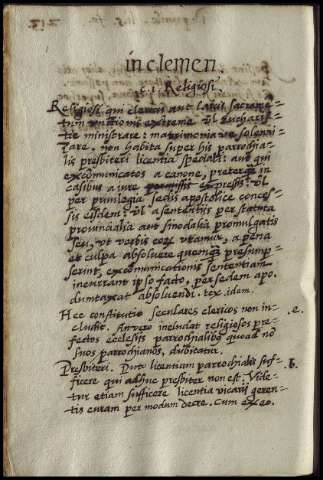 in clemen.
c. 1. Religiosi.
Religiosi, qui clericis aut laicis sacrame-
tum unctionis extreme, vl' eucharis-
tie ministrare: matrimonia ve solenni-
zare, non habita super his parrochia-
lis presbiteri licentia speciali: aut qui
excomunicatos a canone, preterq in
casibus a iure expressis: vl'
per privilegia sedis apostolice conces-
sis eisdem: vl' a sententijs per statuta
provincialia aut sinodalia promulgatis
seu, ut verbis eorum utamur, a pena
et culpa absolvere quemq presump-
serint, excomunicationis sententiam
incurrant ipso facto, per sedem apo.
dumtaxat absolvendi. tex. idem.
Hec constitutio seculares clericos non in-
cludit. An vero includat religiosos pre-
fectos ecclesijs parrochialibus quoad no
suos parrochianos, dubitatur.
Presbiteri. Puto licentiam parrochialis suf-
ficere qui adhuc presbiter non est. Vide-
tur etiam sufficere licentia vicarij geren-
tis curam per modum